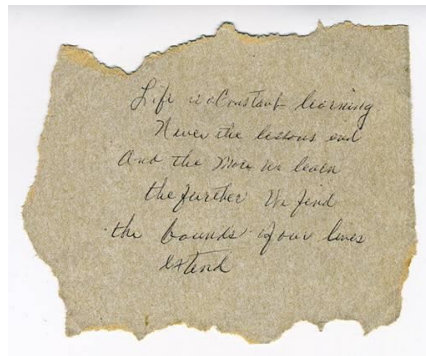 Life is a Constant learning
Never the lessons end
And the More we learn
the further We find
the bounds of our lives
extend